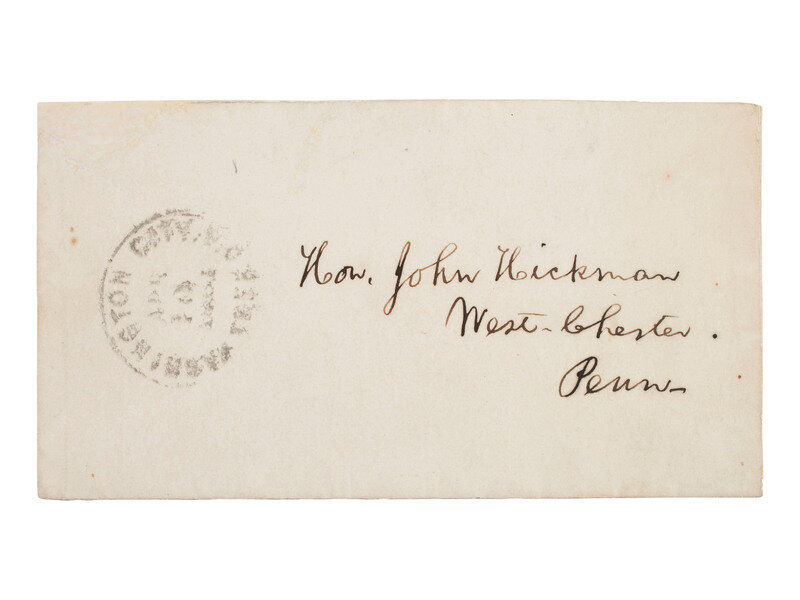 WASHINGTON CITY, D.C.
FREE
Hon. John Hickman
West-Chester.
Penn-